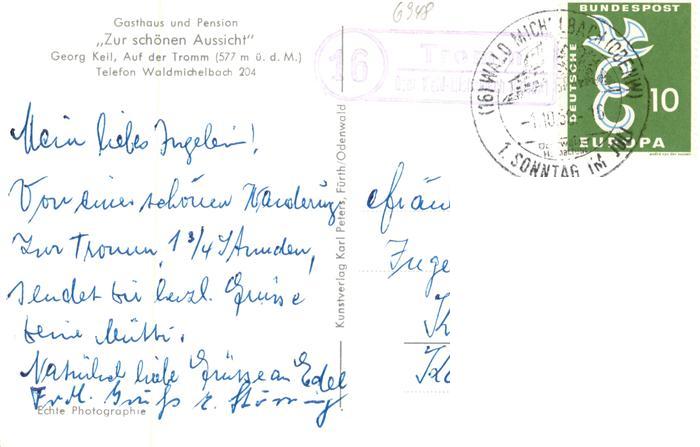 Gasthaus und Pension
„Zur schönen Aussicht"
Georg Keil, Auf der Tromm (577 m ü. d. M.)
Telefon Waldmichelbach 204
6948
16
Mein liebes Ingelein!
Von einer schönen Wanderung
zur Tromm, 1 3/4 Stunden,
sendet dir herzl. Grüsse
deine Mutti.
Natürlich liebe Grüsse an Edel
Frdl. Gruß
Echte Photographie
Kunstverlag Karl Peters, Fürth/Odenwald
Fräu
Inge
DEUTSCHE BUNDESPOST
10
EUROPA
(16) WALD MICHELBACH (ODENW)
1. SONNTAG IM JULI